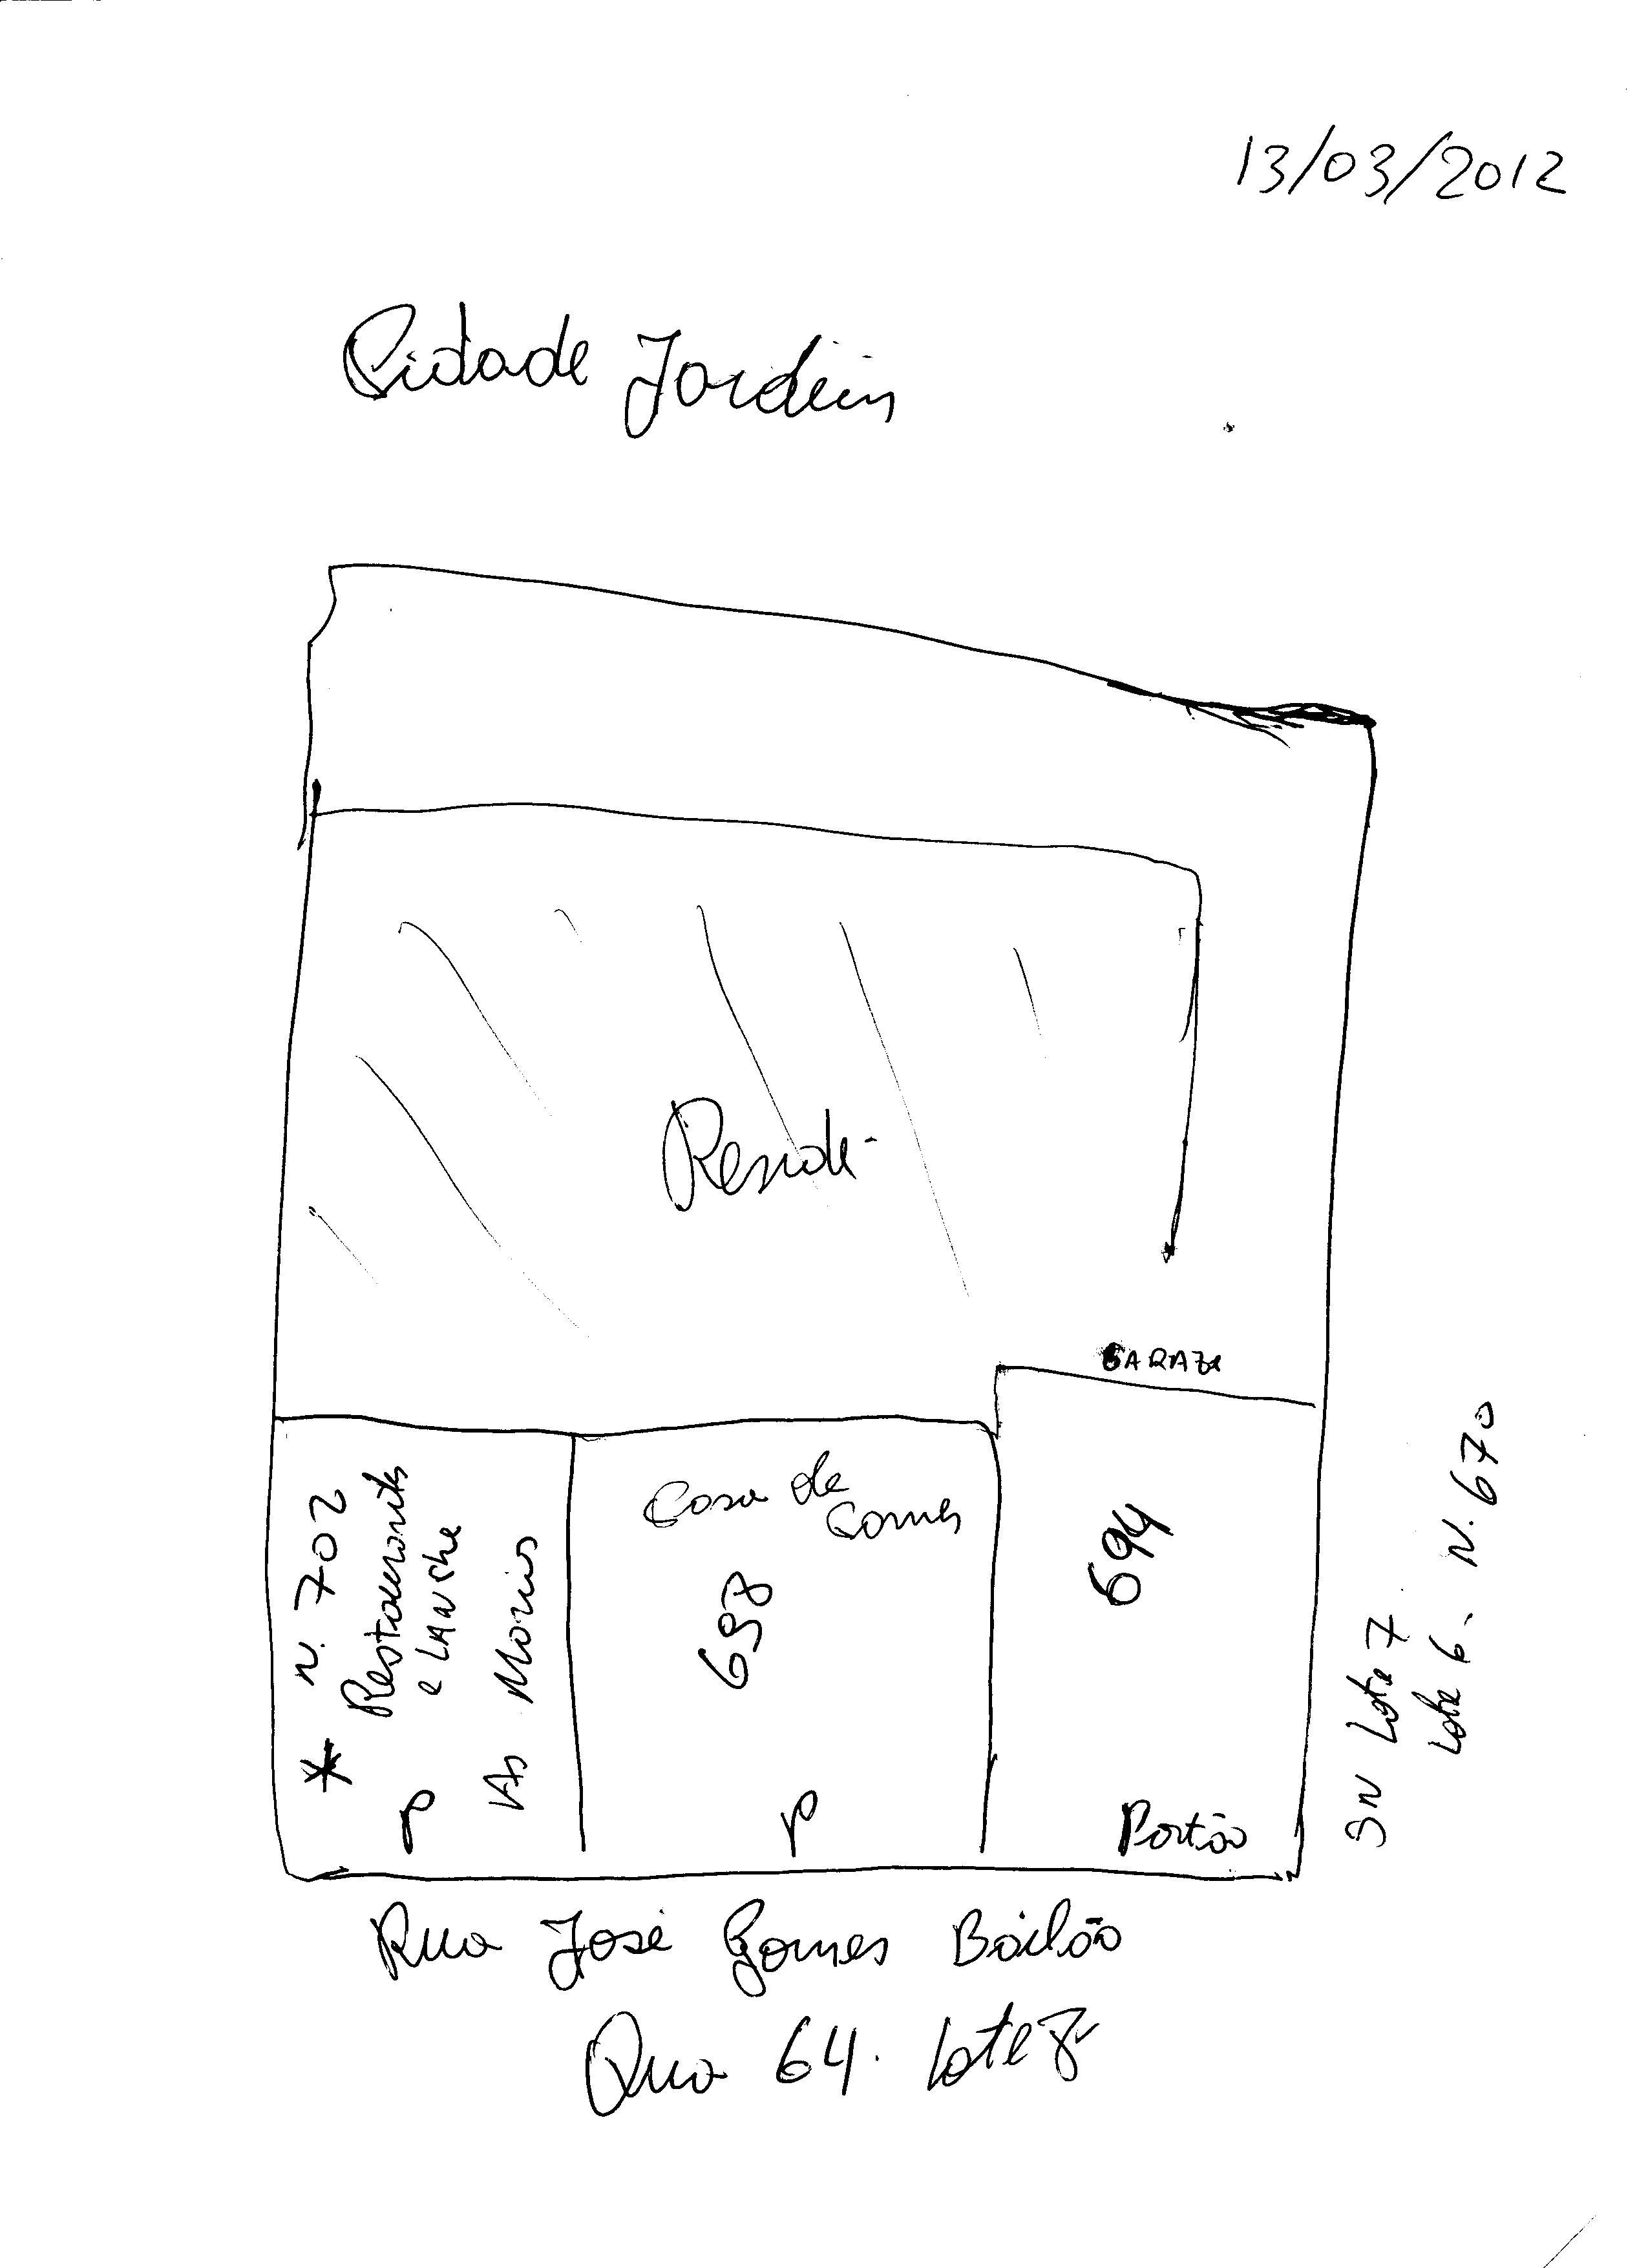 13/03/2012
Cidade Jardim
Reside-
GARAZE
* N. 702
Restaurante
e LANche
As Marias
P
Casa de
Carnes
698
P
694
Portão
SN Lote 7
Lote 6. N. 670
Rua José Gomes Bailão
Qua 64. Lote 8